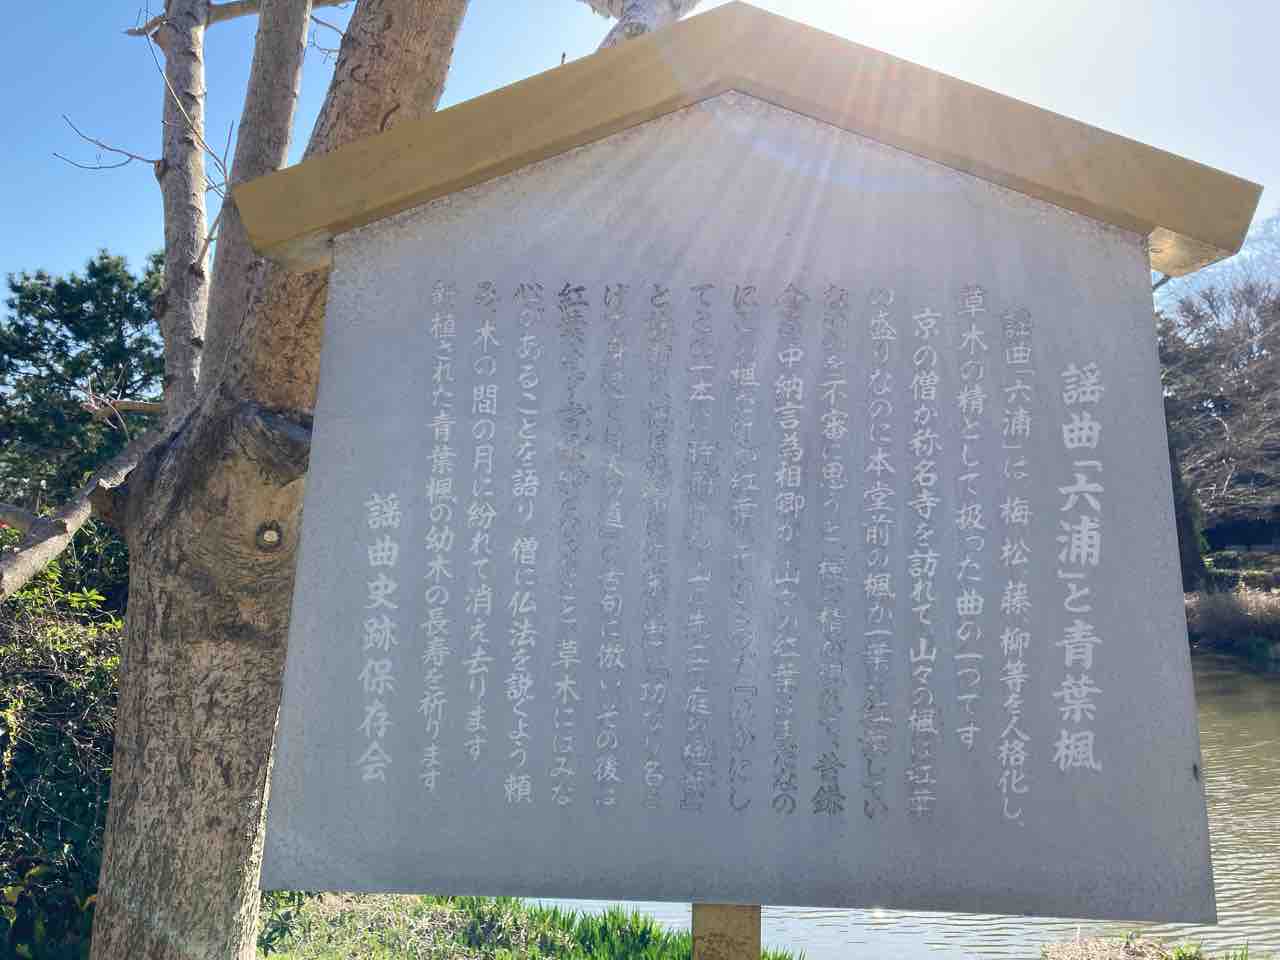 謡曲「六浦」と青葉楓
謡曲「六浦」は、梅、松、藤、柳等を人格化し、
草木の精として扱った曲の一つです
京の僧が称名寺を訪れて、山々の楓は紅葉
の盛りなのに本堂前の楓が一葉も紅葉してい
ないのを不審に思うと、楓の精が現れて、昔鎌
倉の中納言為相卿が、山々の紅葉はまだなの
にこの楓だけが紅葉していたので『いかにし
てこの一本に時雨けん 山に先立つ庭のもみぢ
と
功なり名
げて身
天の道』の古句に倣い、その後は
紅葉 こと、草木にはみな
心があることを語り、僧に仏法を説くよう頼
み、木の間の月に紛れて消え去ります
新植された青葉楓の幼木の長寿を祈ります
謡曲史跡保存会